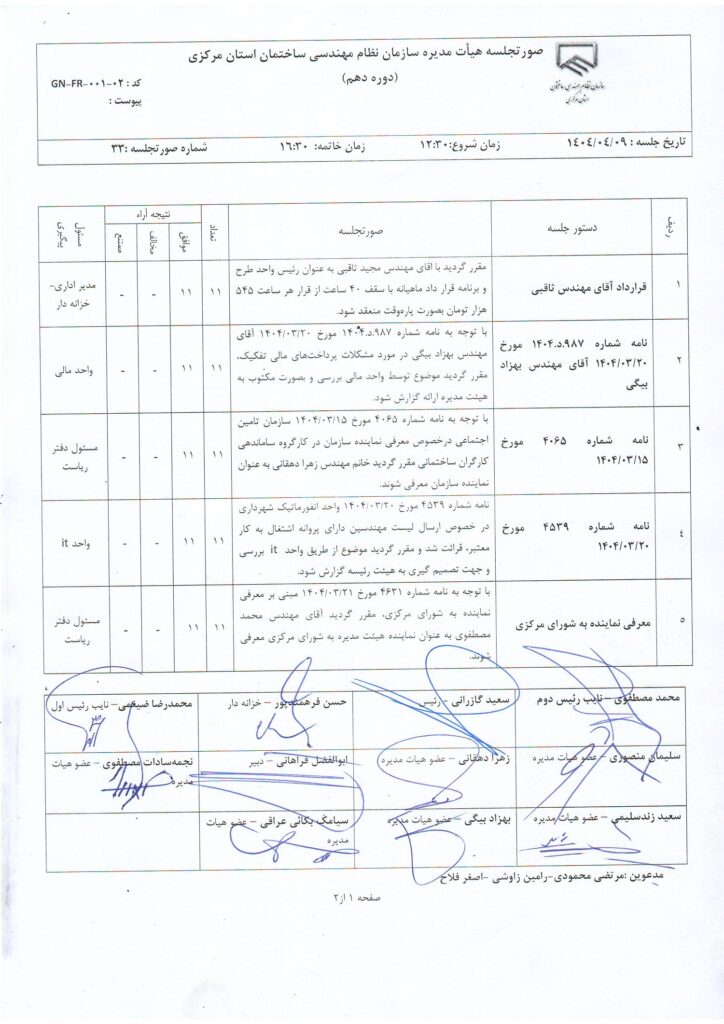 سازمان نظام مهندسی ساختمان
استان مرکزی
صورتجلسه هیأت مدیره سازمان نظام مهندسی ساختمان استان مرکزی
(دوره دهم)
کد : GN-FR-۰۰۱-۰۲
پیوست :
تاریخ جلسه : ۱۴۰۴/۰۴/۰۹
زمان شروع:۱۲:۳۰
زمان خاتمه: ۱۶:۳۰
شماره صورتجلسه :۳۳
ردیف
دستور جلسه
صورتجلسه
تعداد
نتیجه آراء
موافق
مخالف
ممتنع
مسئول
پیگیری
۱
قرارداد آقای مهندس ثاقبی
مقرر گردید با اقای مهندس مجید ثاقبی به عنوان رئیس واحد طرح
و برنامه قرار داد ماهیانه با سقف ۴۰ ساعت از قرار هر ساعت ۵۴۵
هزار تومان بصورت پاره‌وقت منعقد شود.
۱۱
۱۱
-
-
مدیر اداری-
خزانه دار
۲
نامه شماره ۹۸۷.د.۱۴۰۴ مورخ
۱۴۰۴/۰۳/۲۰ آقای مهندس بهزاد
بیگی
با توجه به نامه شماره ۹۸۷.د.۱۴۰۴ مورخ ۱۴۰۴/۰۳/۲۰ آقای
مهندس بهزاد بیگی در مورد مشکلات پرداخت‌های مالی تفکیک،
مقرر گردید موضوع توسط واحد مالی بررسی و بصورت مکتوب به
هیئت مدیره ارائه گزارش شود.
۱۱
۱۱
-
-
واحد مالی
۳
نامه شماره ۴۰۶۵ مورخ
۱۴۰۴/۰۳/۱۵
با توجه به نامه شماره ۴۰۶۵ مورخ ۱۴۰۴/۰۳/۱۵ سازمان تامین
اجتماعی درخصوص معرفی نماینده سازمان در کارگروه ساماندهی
کارگران ساختمانی مقرر گردید خانم مهندس زهرا دهقانی به عنوان
نماینده سازمان معرفی شوند.
۱۱
۱۱
-
-
مسئول دفتر
ریاست
۴
نامه شماره ۴۵۳۹ مورخ
۱۴۰۴/۰۳/۲۰
نامه شماره ۴۵۳۹ مورخ ۱۴۰۴/۰۳/۲۰ واحد انفورماتیک شهرداری
در خصوص ارسال لیست مهندسین دارای پروانه اشتغال به کار
معتبر، قرائت شد و مقرر گردید موضوع از طریق واحد it بررسی
و جهت تصمیم گیری به هیئت رئیسه گزارش شود.
۱۱
۱۱
-
-
واحد it
۵
معرفی نماینده به شورای مرکزی
با توجه به نامه شماره ۴۶۳۱ مورخ ۱۴۰۴/۰۳/۲۱ مبنی بر معرفی
نماینده به شورای مرکزی، مقرر گردید آقای مهندس محمد
مصطفوی به عنوان نماینده هیئت مدیره به شورای مرکزی معرفی
شوند.
۱۱
۱۱
-
-
مسئول دفتر
ریاست
محمد مصطفوی – نایب رئیس دوم
سعید گازرانی – رئیس
حسن فرهمندپور – خزانه دار
محمدرضا ضیغمی – نایب رئیس اول
سلیمان منصوری – عضو هیات مدیره
زهرا دهقانی – عضو هیات مدیره
ابوالفضل فراهانی – دبیر
نجمه‌سادات مصطفوی – عضو هیات
مدیره
سعید زندسلیمی – عضو هیات مدیره
بهزاد بیگی – عضو هیات مدیره
سیامک بکائی عراقی – عضو هیات
مدیره
مدعوین :مرتضی محمودی-رامین زاوشی –اصغر فلاح
صفحه ۱ از۲